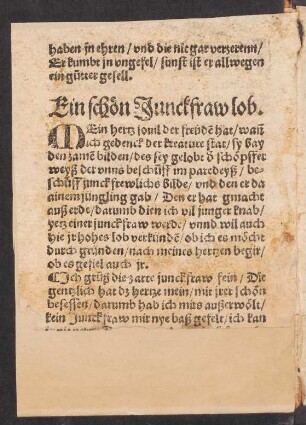 haben jn ehren / vnd die nie gar verzeren /
Er kumbt jn vngefel / sunst ist er allwegen
ein gůtter gesell.
Ein schön Junckfraw lob.
MEin hertz souil der freüde hat / wañ
ich gedenck der kreatur stat / sy bay
den zamẽ bilden / des sey gelobt ő schöpffer
weyß der vnns beschüff im paredeyß / be-
schüff junckfrewliche Bilde / vnd den er da
ainem jüngling gab / Den er hat gmacht
auß erde / darumb dien ich vil junger knab /
yetz einer junckfraw werde / vnnd wil auch
hie jr hohes lob verkündẽ / ob ich es möcht
durch gründen / nach meines hertzen begir /
ob es gefiel auch jr.
¶Ich grüß die zarte junckfraw fein / Die
gentzlich hat dz hertze mein / mit jrer schön
besessen / darumb hab ich mirs außerwölt /
kein Junckfraw mir nye baß gefelt / ich kan